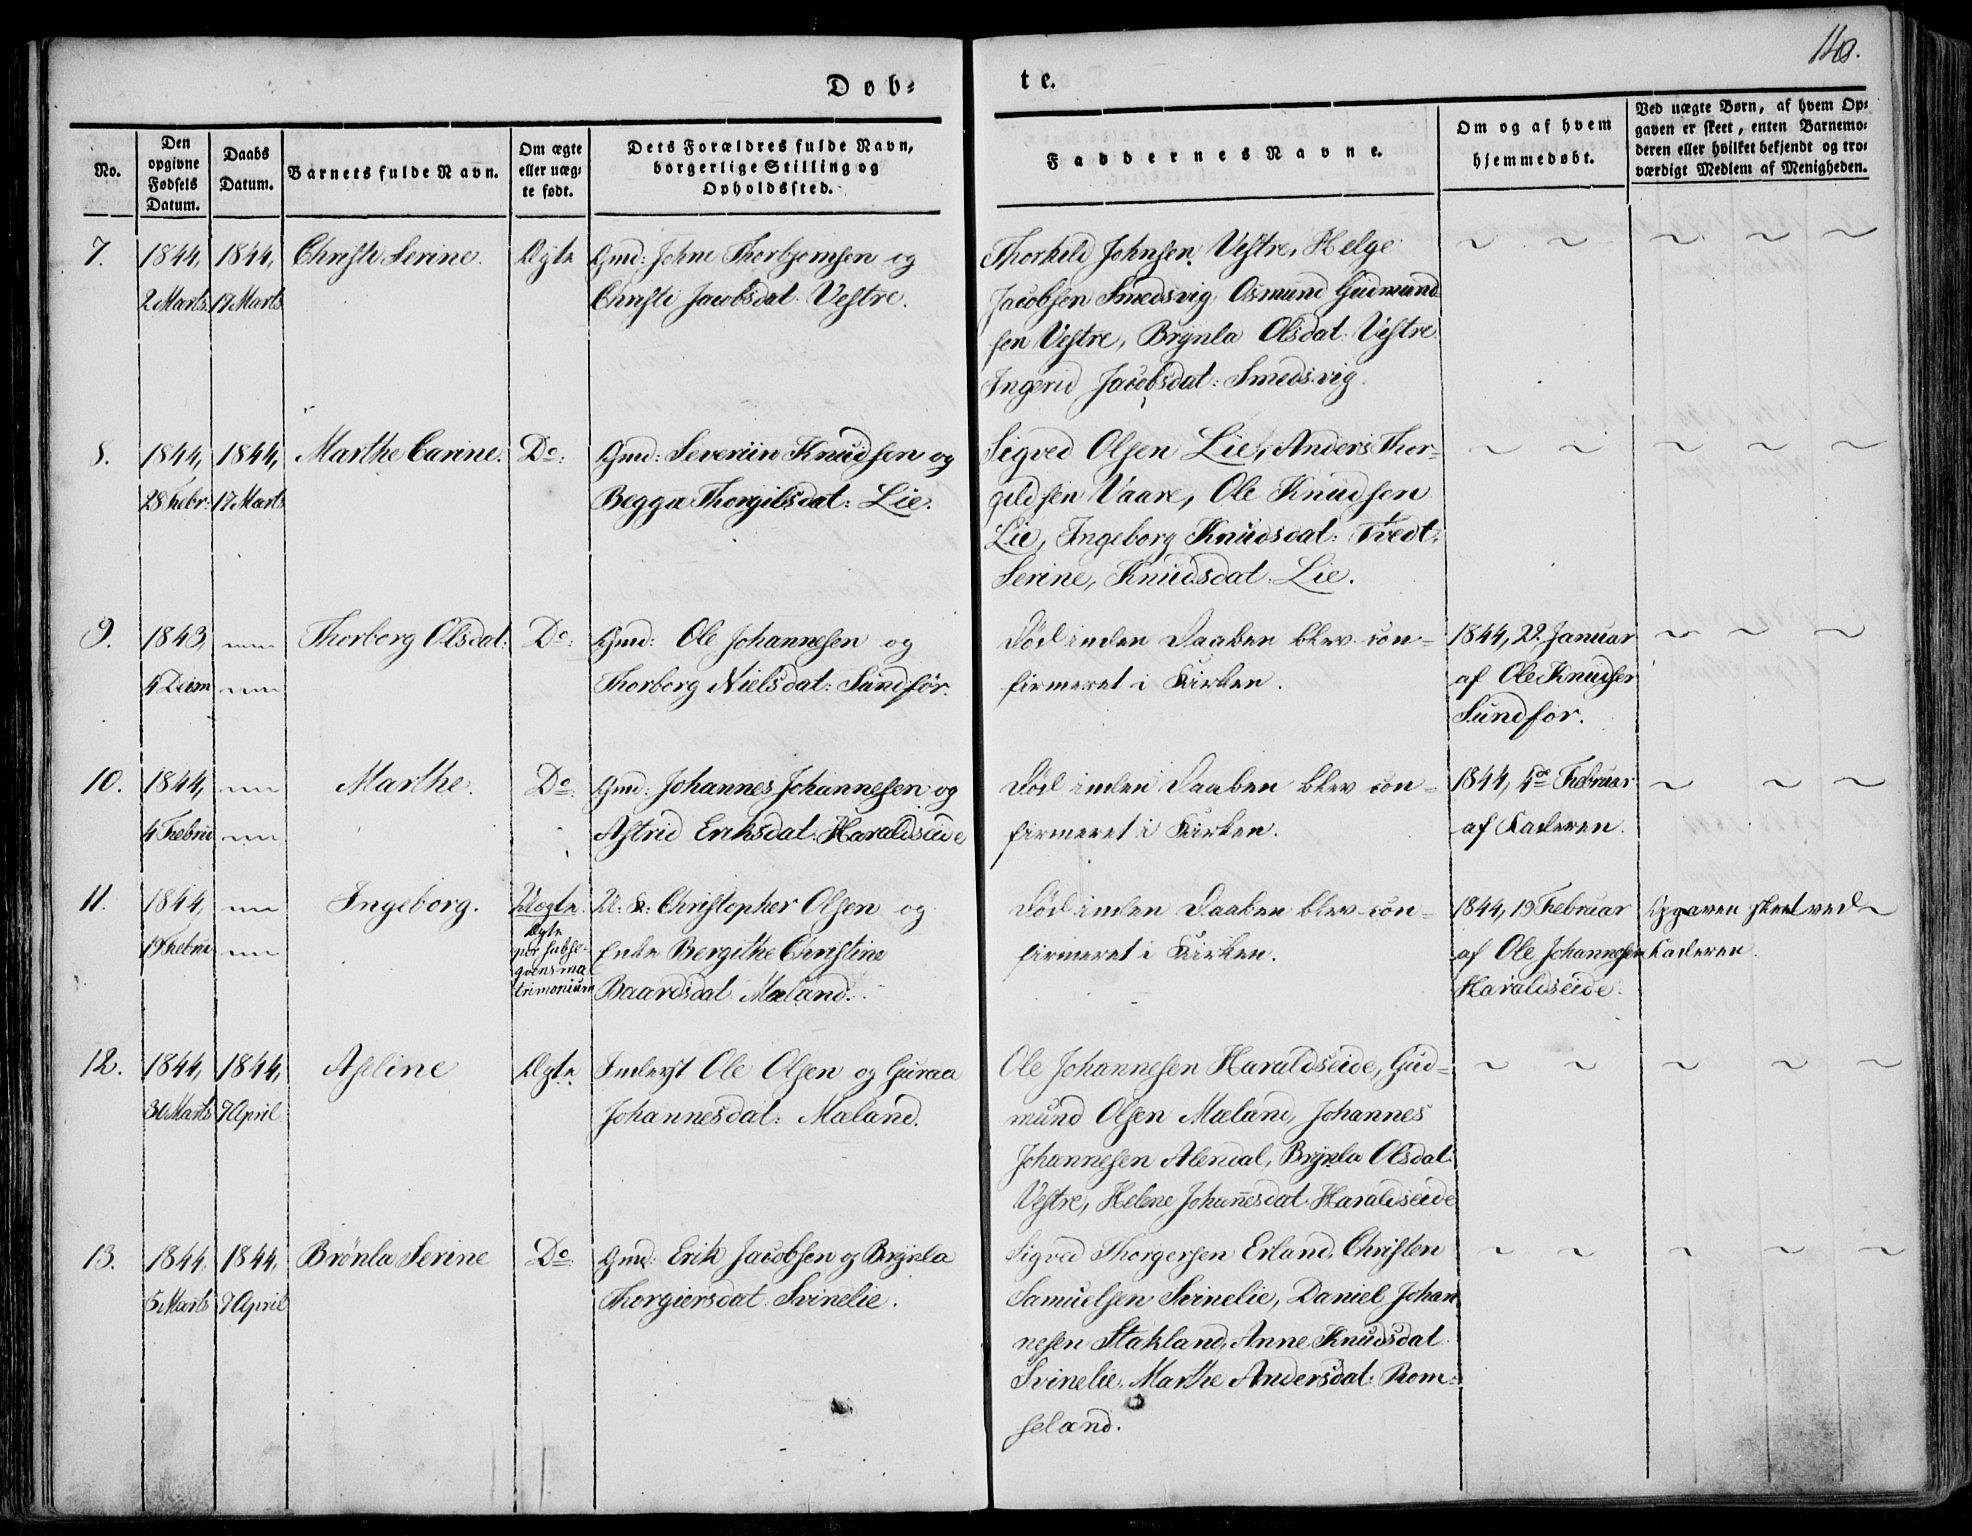 Døb-
te.
No.
Den
opgivne
Fødsels
Datum.
Daabs
Datum.
Barnets fulde Navn.
Om ægte
eller uæg-
te født.
Dets Forældres fulde Navn,
borgerlige Stilling og
Opholdssted.
Faddernes Navne.
Om og af hvem
hjemmedøbt.
Ved uægte Børn, af hvem Op-
gaven er skeet, enten Barnemo-
deren eller hvilket bekjendt og tro-
værdigt Medlem af Menigheden.
7.
1844,
2 Marts
1844,
17 Marts
Christi Serine.
Ægte
Gmd: Johne Thorbjornsen og
Christi Jacobsdat: Vestre.
Thorkild Johnsen Vestre, Helge
Jacobsen Smedsvig, Osmund Gudmund
sen Vestre, Brynla Olsdat: Vestre
Ingerid Jacobsdat: Smedsvig.
8.
1844,
28 Febr:
1844,
17 Marts
Marthe Carine.
Do:
Gmd: Severiin Knudsen og
Begga Thorgilsdat: Lie.
Sigved Olsen Lie, Anders Thor-
gildsen Vaare, Ole Knudsen
Lie, Ingeborg Knudsdat: Tvedt.
Serine, Knudsdat Lie.
9.
1843,
4 Decem
Thorborg Olsdat:
Do:
Gmd: Ole Johannesen og
Thorborg Nielsdat: Sundfør.
Død inden Daaben blev con-
firmeret i Kirken.
1844, 22 Januar
af Ole Knudsen
Sundfør.
10.
1844,
4 Febru
Marthe.
Do
Gmd: Johannes Johannesen og
Astrid Eriksdat: Haraldseide
Død inden Daaben blev con-
firmeret i Kirken.
1844, 4de Februar
af Faderen.
11.
1844,
19 Febru
Ingeborg.
Uægte
Ægte
per subse-
qvens ma
trimonium
U: K: Christopher Olsen og
Enke Bergithe Christine
Baardsdat Mæland.
Død inden Daaben blev con-
firmeret i Kirken.
1844, 19 Februar
af Ole Johannesen
Haraldseide.
Opgaven skeet ved
Faderen.
12.
1844,
30 Marts
1844,
7 April
Aseline
Ægte
Inderst Ole Olsen og Guraa
Johannesdat: Mæland.
Ole Johannesen Haraldseide, Gud-
mund Olsen Mæland, Johannes
Johannesen Alendal, Brynla Olsdat:
Vestre, Helene Johannesdat Haraldseide
13.
1844,
5 Marts
1844,
7 April
Brønla Serine
Do
Gmd: Erik Jacobsen og Brynla
Thorgiersdat: Svinelie.
Sigved Thorgersen Erland, Christen
Samuelsen Svinelie, Daniel Johan
nesen Stakland, Anne Knudsdat
Svinelie, Marthe Andersdat: Rom-
seland.